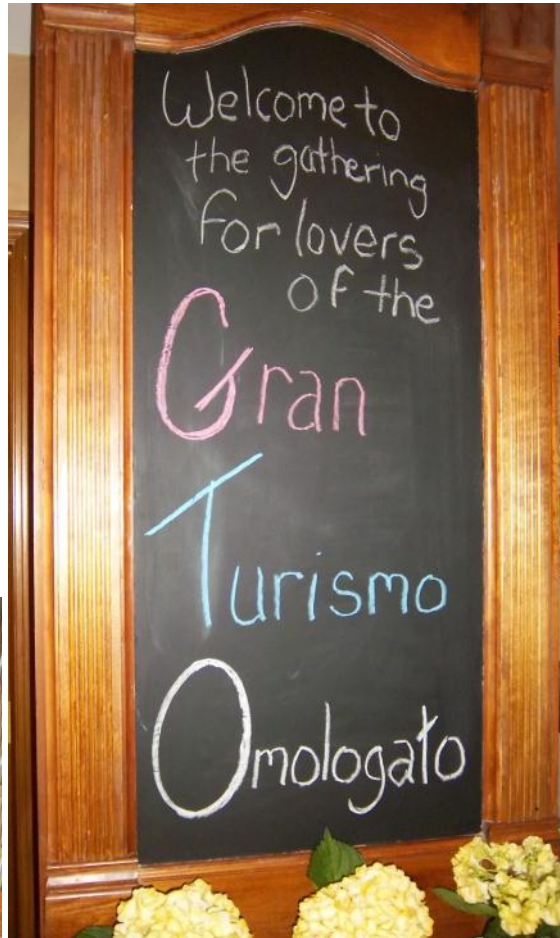 Welcome to
the gathering
for lovers
of the
Gran
Turismo
Omologato